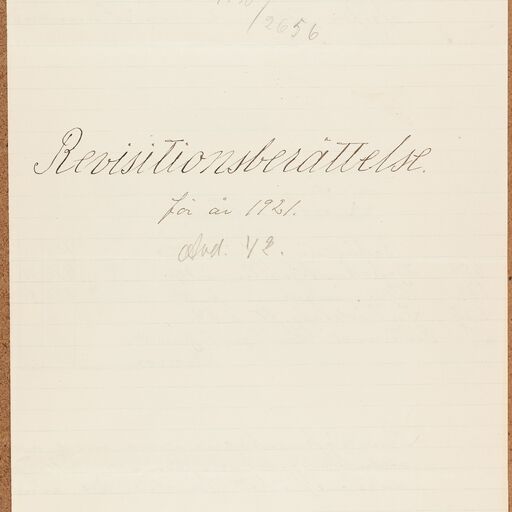 /2656
Revisitionsberättelse.
för år 1921.
Avd. 1/2.